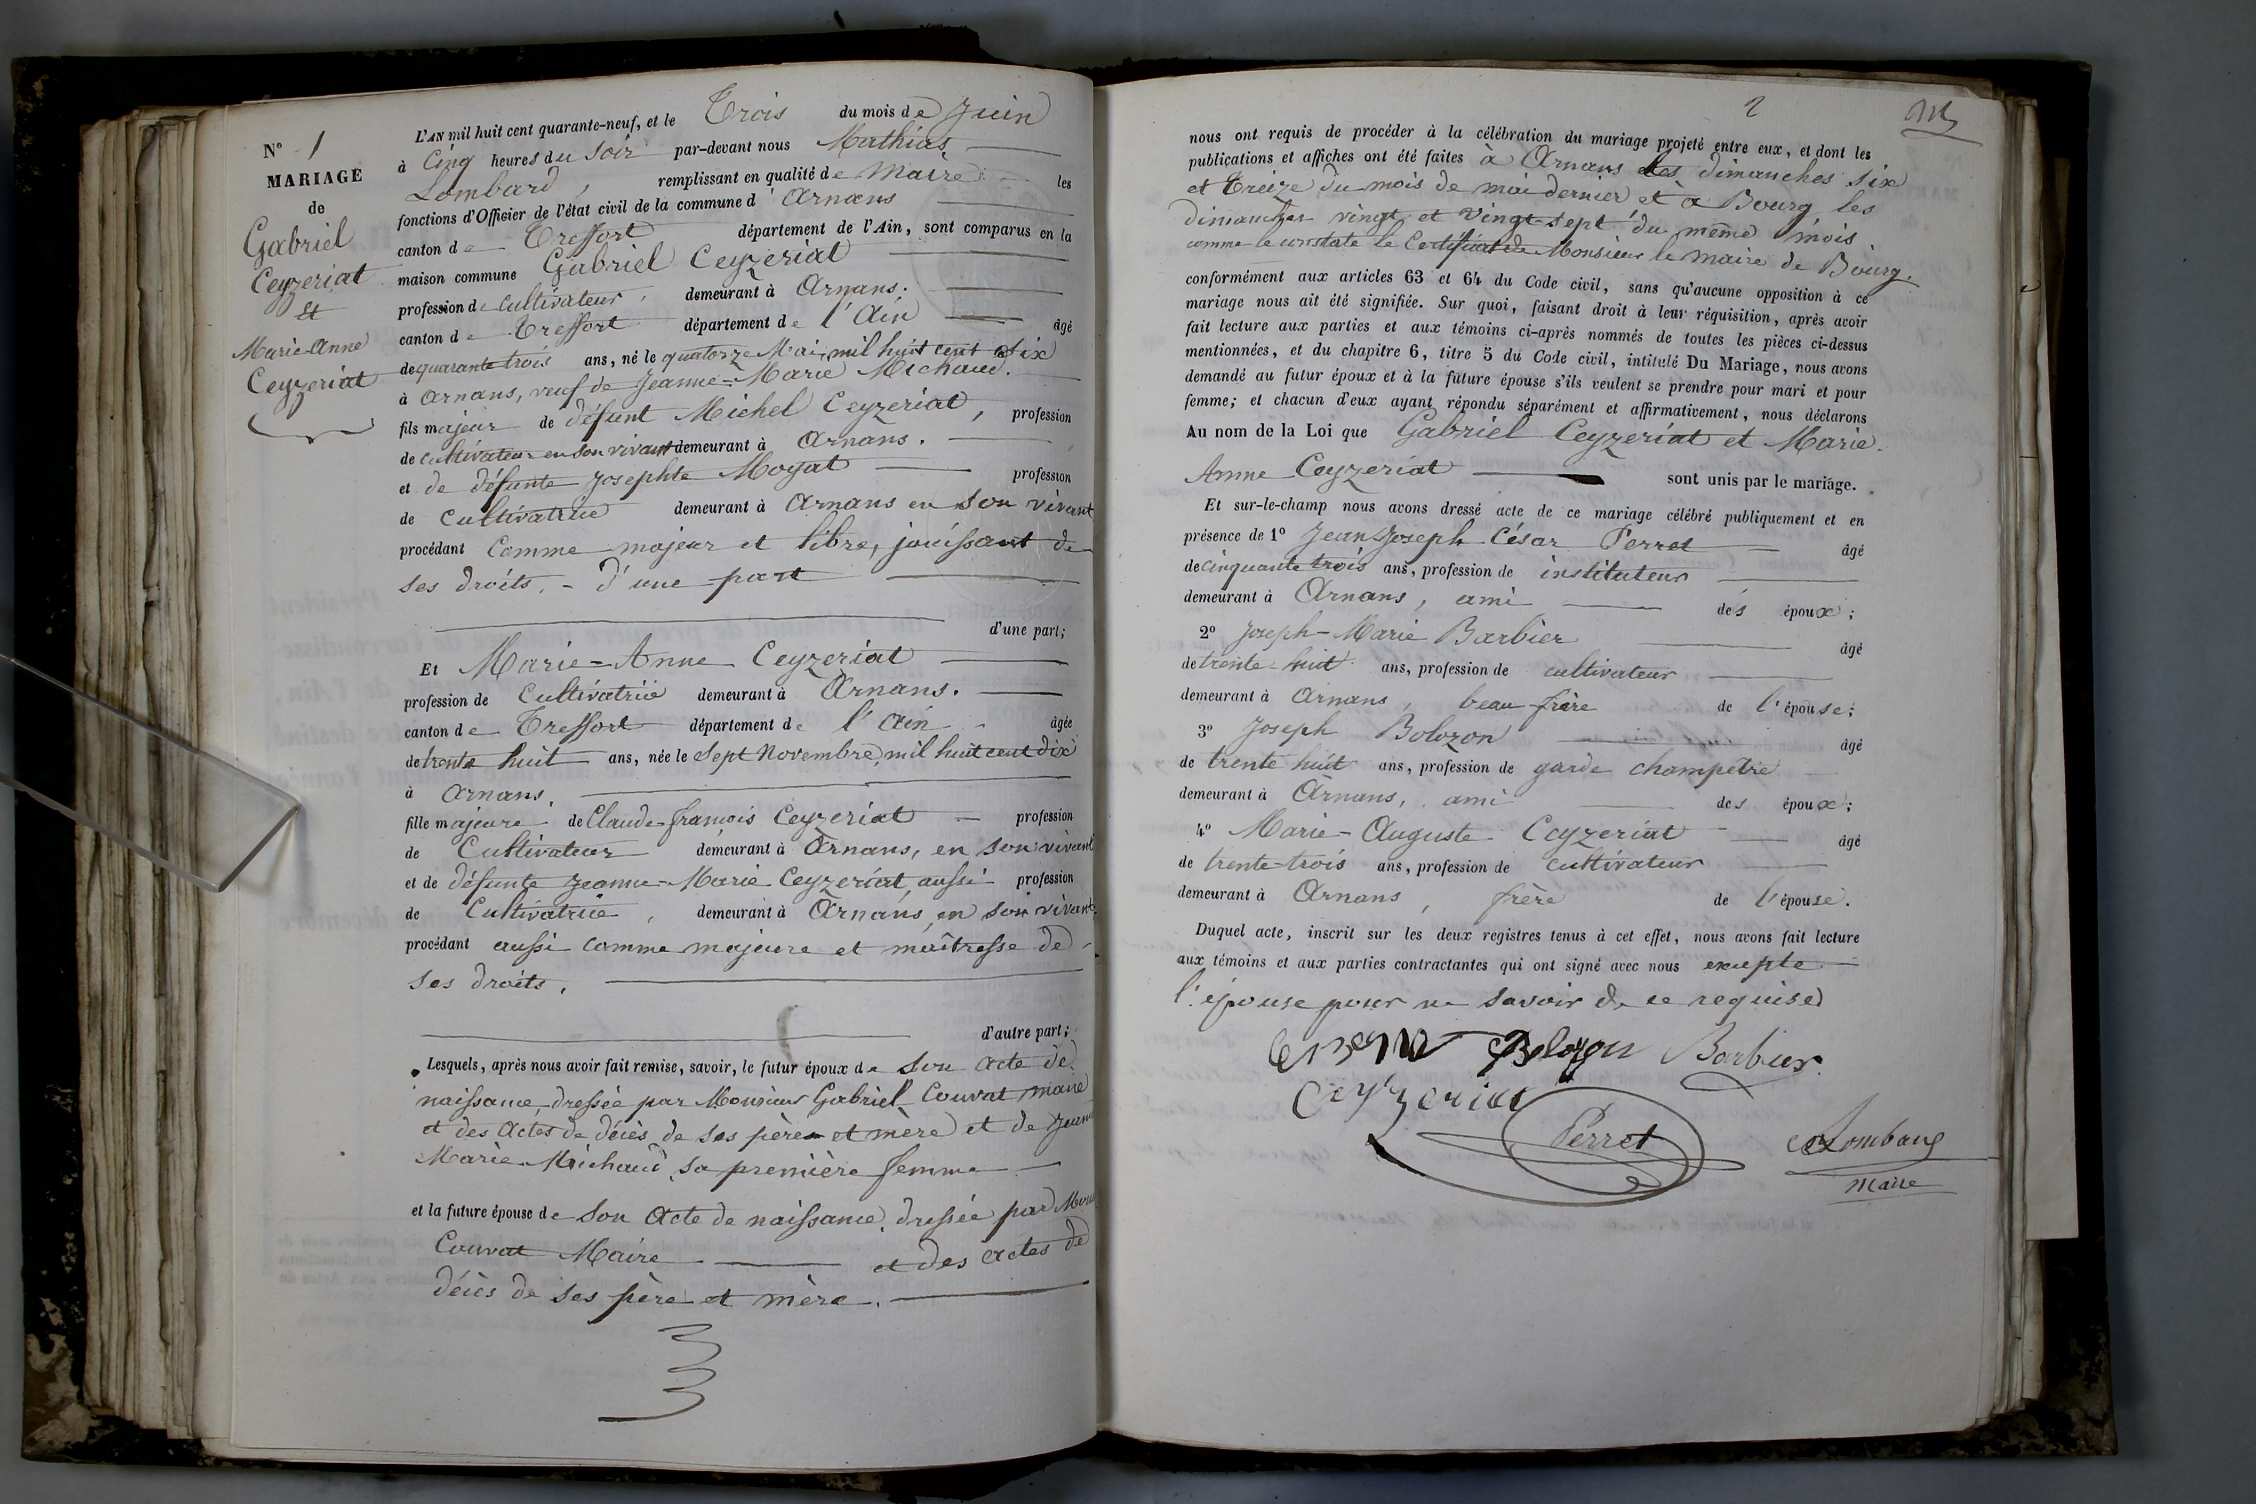 N° 1
MARIAGE
de
Gabriel
Ceyzeriat
et
Marie-Anne
Ceyzeriat
L'AN mil huit cent quarante-neuf, et le Trois du mois de Juin
à Cinq heures du Soir par-devant nous Mathias
Lombard, remplissant en qualité de Maire les
fonctions d'Officier de l'état civil de la commune d'Arnans
canton de Treffort département de l'Ain, sont comparus en la
maison commune Gabriel Ceyzeriat
profession de cultivateur, demeurant à Arnans.
canton de Treffort département de l'Ain âgé
de quarante trois ans, né le quatorze Mai, mil huit cent Six
à Arnans, veuf de Jeanne-Marie Michaud.
fils majeur de défunt Michel Ceyzeriat, profession
de cultivateur en son vivant demeurant à Arnans.
et de défunte Josephte Moyat profession
de Cultivatrice demeurant à Arnans en son vivant
procédant Comme majeur et libre, jouissant de
ses droits. - d'une part
d'une part;
Et Marie-Anne Ceyzeriat
profession de Cultivatrice demeurant à Arnans.
canton de Treffort département de l'Ain âgée
de trente huit ans, née le Sept Novembre, mil huit cent dix
à Arnans.
fille majeure de Claude-françois Ceyzeriat profession
de Cultivateur demeurant à Arnans, en son vivant
et de défunte Jeanne-Marie Ceyzeriat, aussi profession
de Cultivatrice, demeurant à Arnans, en son vivant
procédant aussi comme majeure et maîtresse de
ses droits.
d'autre part;
Lesquels, après nous avoir fait remise, savoir, le futur époux de son acte de
naissance, dressée par Monsieur Gabriel Couvat maire
et des Actes de décès de ses père et mère et de Jeanne
Marie Michaud, sa première femme
et la future épouse de son Acte de naissance, dressée par
Couvat Maire et des actes de
décès de ses père et mère.
2
nous ont requis de procéder à la célébration du mariage projeté entre eux, et dont les
publications et affiches ont été faites à Arnans les dimanches six
et treize du mois de mai dernier et à Bourg les
dimanches vingt et vingt-sept du même mois
comme le constate le Certificat de Monsieur le maire de Bourg.
conformément aux articles 63 et 64 du Code civil, sans qu'aucune opposition à ce
mariage nous ait été signifiée. Sur quoi, faisant droit à leur réquisition, après avoir
fait lecture aux parties et aux témoins ci-après nommés de toutes les pièces ci-dessus
mentionnées, et du chapitre 6, titre 5 du Code civil, intitulé Du Mariage, nous avons
demandé au futur époux et à la future épouse s'ils veulent se prendre pour mari et pour
femme; et chacun d'eux ayant répondu séparément et affirmativement, nous déclarons
Au nom de la Loi que Gabriel Ceyzeriat et Marie-
Anne Ceyzeriat sont unis par le mariage.
Et sur-le-champ nous avons dressé acte de ce mariage célébré publiquement et en
présence de 1° Jean Joseph César Perret âgé
de cinquante trois ans, profession de instituteur
demeurant à Arnans, ami des époux;
2° Joseph-Marie Barbier âgé
de trente-huit ans, profession de cultivateur
demeurant à Arnans, beau-frère de l'épouse;
3° Joseph Bolozon âgé
de trente huit ans, profession de garde champetre
demeurant à Arnans, ami des époux;
4° Marie-Auguste Ceyzeriat âgé
de trente-trois ans, profession de cultivateur
demeurant à Arnans, frère de l'épouse.
Duquel acte, inscrit sur les deux registres tenus à cet effet, nous avons fait lecture
aux témoins et aux parties contractantes qui ont signé avec nous excepte
l'épouse pour ne savoir de ce requise
Bolozon Barbier
Ceyzeriat
Perret Lombard
Maire